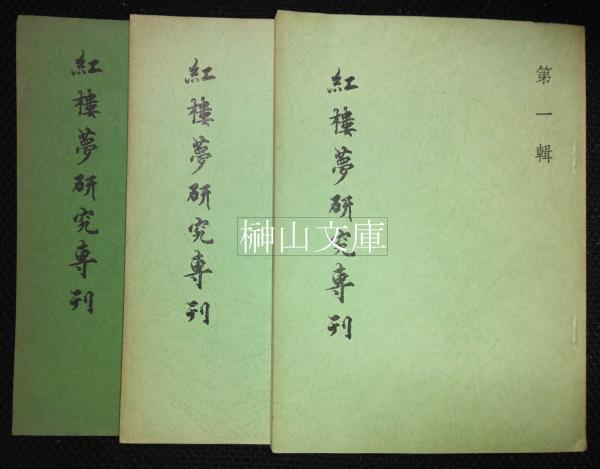 紅樓夢研究專刊
紅樓夢研究專刊
第一輯
紅樓夢研究專刊
榊山文庫